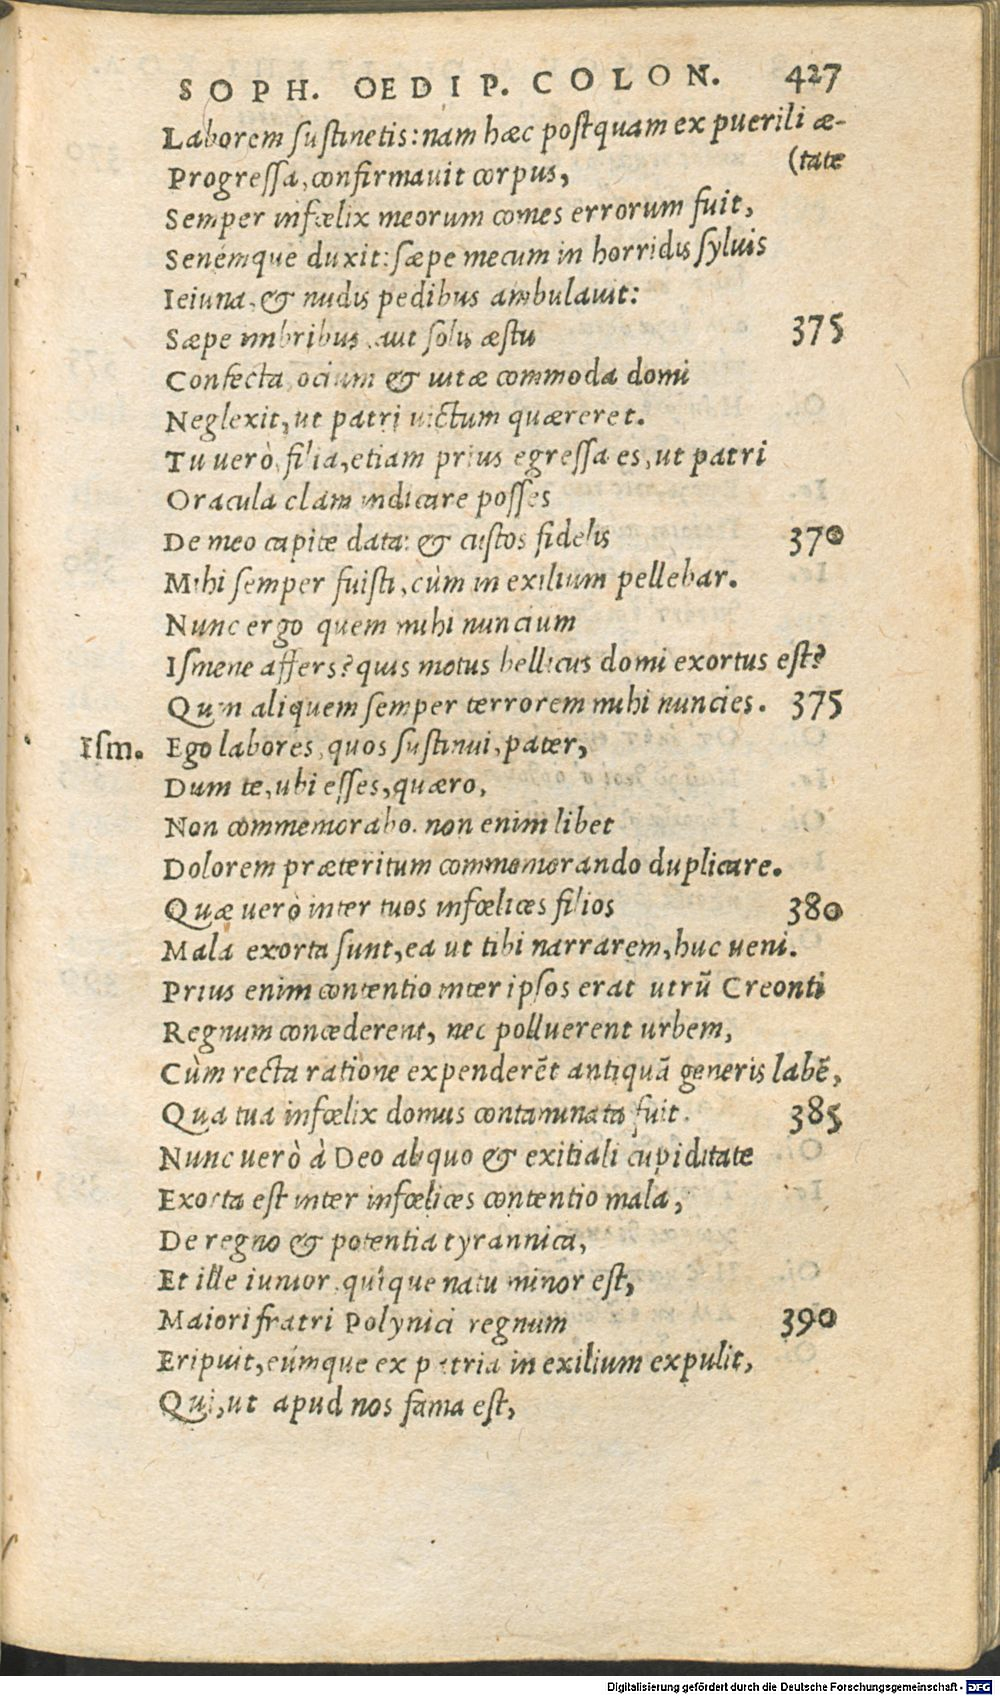 SOPH. OEDIP. COLON. 427
Laborem sustinetis: nam hæc postquam ex puerili æ-
(tate
Progressa, confirmauit corpus,
Semper infœlix meorum comes errorum fuit,
Senémque duxit: sæpe mecum in horridis syluis
Ieiuna, & nudis pedibus ambulauit:
Sæpe imbribus, aut solis æstu 375
Confecta, ocium & uitæ commoda domi
Neglexit, ut patri uictum quæreret.
Tu uerò, filia, etiam prius egressa es, ut patri
Oracula clam indicare posses
De meo capite data: & custos fidelis 370
Mihi semper fuisti, cùm in exilium pellebar.
Nunc ergo quem mihi nuncium
Ismene affers? quis motus bellicus domi exortus est?
Quin aliquem semper terrorem mihi nuncies. 375
Ism. Ego labores, quos sustinui, pater,
Dum te, ubi esses, quæro,
Non commemorabo. non enim libet
Dolorem præteritum commemorando duplicare.
Quæ uerò inter tuos infœlices filios 380
Mala exorta sunt, ea ut tibi narrarem, huc ueni.
Prius enim contentio inter ipsos erat utrũ Creonti
Regnum concederent, nec polluerent urbem,
Cùm recta ratione expenderẽt antiquã generis labẽ,
Qua tua infœlix domus contaminata fuit. 385
Nunc uerò à Deo aliquo & exitiali cupiditate
Exorta est inter infœlices contentio mala,
De regno & potentia tyrannica,
Et ille iunior, quique natu minor est,
Maiori fratri Polynici regnum 390
Eripuit, eúmque ex patria in exilium expulit,
Qui, ut apud nos fama est,
Digitalisierung gefördert durch die Deutsche Forschungsgemeinschaft - DFG